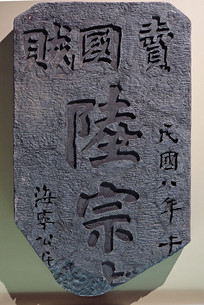 賣國賊
民國八年十
陸宗
海寧公